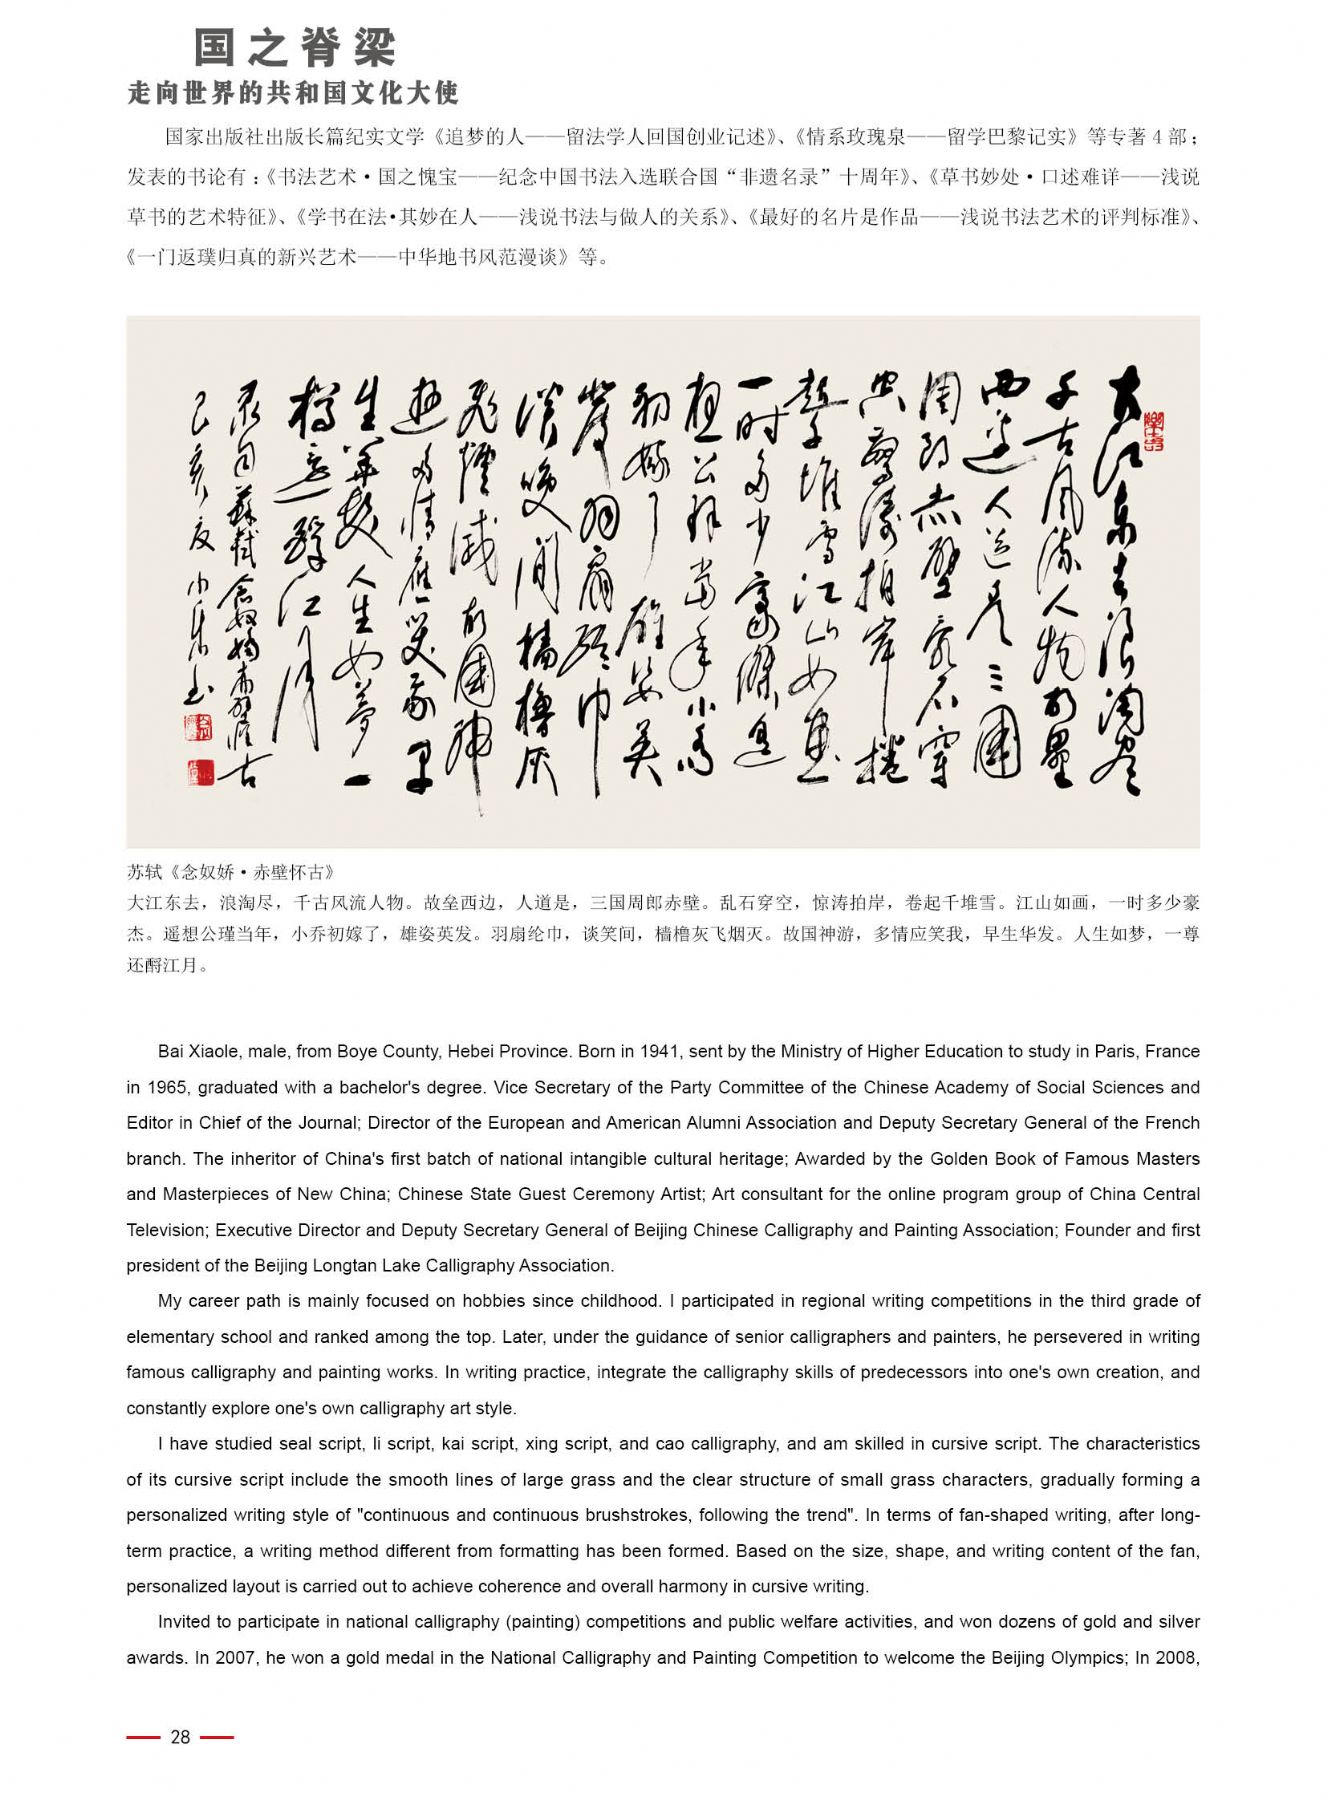 国之脊梁
走向世界的共和国文化大使
国家出版社出版长篇纪实文学《追梦的人——留法学人回国创业记述》、《情系玫瑰泉——留学巴黎记实》等专著 4 部；
发表的书论有：《书法艺术·国之愧宝——纪念中国书法入选联合国“非遗名录”十周年》、《草书妙处·口述难详——浅说
草书的艺术特征》、《学书在法·其妙在人——浅说书法与做人的关系》、《最好的名片是作品——浅说书法艺术的评判标准》、
《一门返璞归真的新兴艺术——中华地书风范漫谈》等。
大江东去浪淘尽
千古风流人物故垒
西边人道是三国
周郎赤壁乱石穿
空惊涛拍岸卷
起千堆雪江山如画
一时多少豪杰遥
想公瑾当年小乔
初嫁了雄姿英
发羽扇纶巾
谈笑间樯橹灰
飞烟灭故国神
游多情应笑我早
生华发人生如梦一
樽还酹江月
录自苏轼念奴娇赤壁怀古
己亥夏小乐书
苏轼《念奴娇·赤壁怀古》
大江东去，浪淘尽，千古风流人物。故垒西边，人道是，三国周郎赤壁。乱石穿空，惊涛拍岸，卷起千堆雪。江山如画，一时多少豪
杰。遥想公瑾当年，小乔初嫁了，雄姿英发。羽扇纶巾，谈笑间，樯橹灰飞烟灭。故国神游，多情应笑我，早生华发。人生如梦，一尊
还酹江月。
Bai Xiaole, male, from Boye County, Hebei Province. Born in 1941, sent by the Ministry of Higher Education to study in Paris, France
in 1965, graduated with a bachelor's degree. Vice Secretary of the Party Committee of the Chinese Academy of Social Sciences and
Editor in Chief of the Journal; Director of the European and American Alumni Association and Deputy Secretary General of the French
branch. The inheritor of China's first batch of national intangible cultural heritage; Awarded by the Golden Book of Famous Masters
and Masterpieces of New China; Chinese State Guest Ceremony Artist; Art consultant for the online program group of China Central
Television; Executive Director and Deputy Secretary General of Beijing Chinese Calligraphy and Painting Association; Founder and first
president of the Beijing Longtan Lake Calligraphy Association.
My career path is mainly focused on hobbies since childhood. I participated in regional writing competitions in the third grade of
elementary school and ranked among the top. Later, under the guidance of senior calligraphers and painters, he persevered in writing
famous calligraphy and painting works. In writing practice, integrate the calligraphy skills of predecessors into one's own creation, and
constantly explore one's own calligraphy art style.
I have studied seal script, li script, kai script, xing script, and cao calligraphy, and am skilled in cursive script. The characteristics
of its cursive script include the smooth lines of large grass and the clear structure of small grass characters, gradually forming a
personalized writing style of "continuous and continuous brushstrokes, following the trend". In terms of fan-shaped writing, after long-
term practice, a writing method different from formatting has been formed. Based on the size, shape, and writing content of the fan,
personalized layout is carried out to achieve coherence and overall harmony in cursive writing.
Invited to participate in national calligraphy (painting) competitions and public welfare activities, and won dozens of gold and silver
awards. In 2007, he won a gold medal in the National Calligraphy and Painting Competition to welcome the Beijing Olympics; In 2008,
28